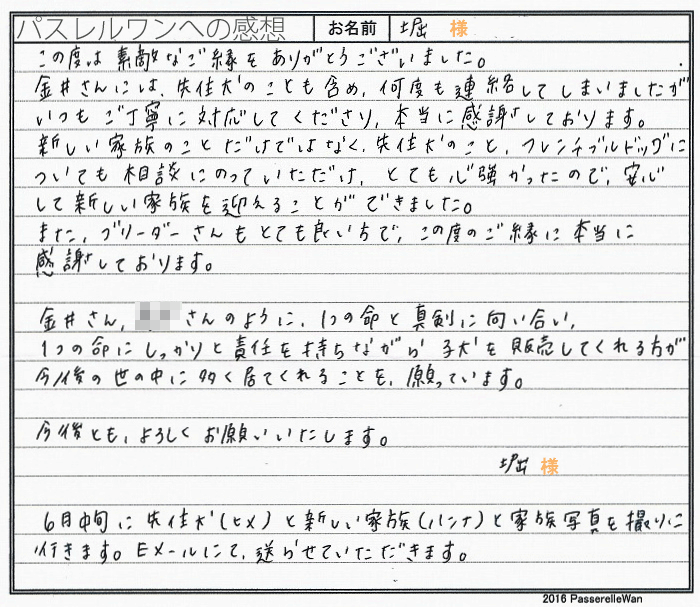 パスレルワンへの感想 お名前 堀 様
この度は素敵なご縁をありがとうございました。
金井さんには、先住犬のことも含め、何度も連絡してしまいましたが
いつもご丁寧に対応してくださり、本当に感謝しております。
新しい家族のことだけではなく、先住犬のこと、フレンチブルドッグに
ついても相談にのっていただけ、とても心強かったので、安心
して新しい家族を迎えることができました。
また、ブリーダーさんもとても良い方で、この度のご縁に本当に
感謝しております。
金井さん、 さんのように、1つの命と真剣に向い合い、
1つの命にしっかりと責任を持ちながら子犬を販売してくれる方が
今後の世の中に多く居てくれることを、願っています。
今後とも、よろしくお願いいたします。
堀 様
6月中旬に先住犬(ヒメ)と新しい家族(ハンナ)と家族写真を撮りに
行きます。Eメールにて、送らせていただきます。
2016 PasserelleWan